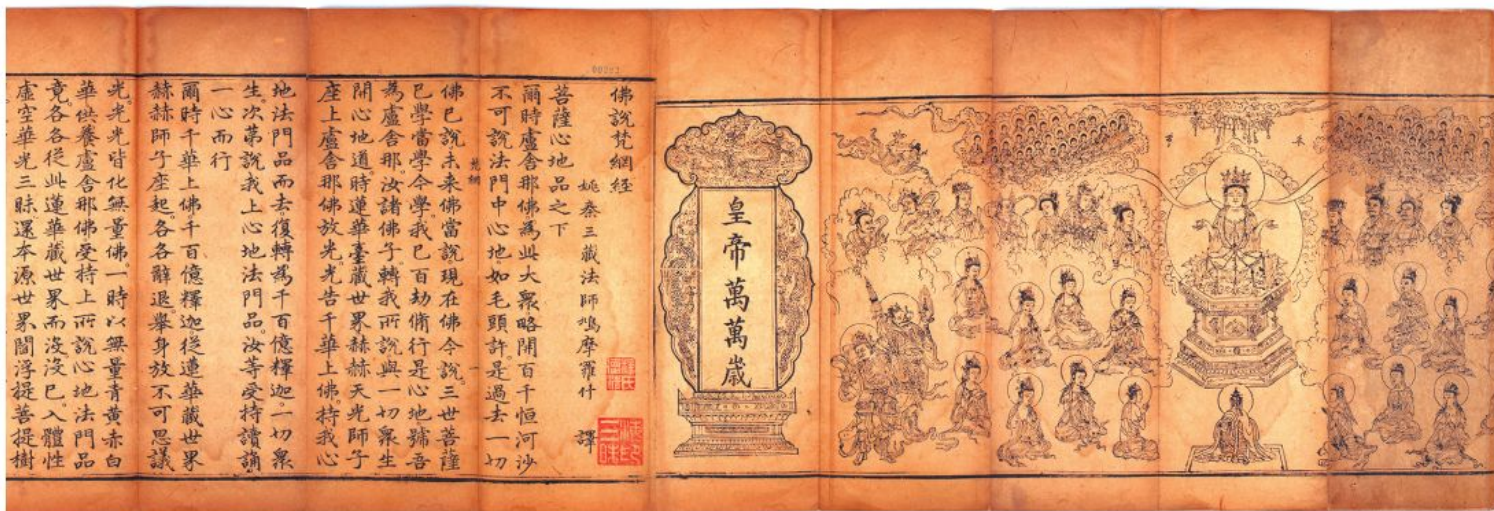 皇帝萬萬歲
佛說梵網経
姚秦三藏法師鳩摩羅什 譯
菩薩心地品之下
爾時盧舍那佛為此大衆略開百千恒河沙
不可說法門中心地如毛頭許。是過去一切
梵網 一
佛已說未来佛當說現在佛今說。三世菩薩
已學當學今學我已百劫脩行是心地號吾
為盧舍那。汝諸佛子轉我所說與一切衆生
開心地道。時蓮華臺藏世界赫赫天光師子
座上盧舍那佛放光光告千華上佛。持我心
地法門品而去復轉爲千百億釋迦。一切衆
生。次第說我上心地法門品。汝等受持讀誦
一心而行
爾時千華上佛千百億釋迦從蓮華藏世界
赫赫師子座起。各各辭退。舉身放不可思議
光。光光皆化無量佛。一時以無量青黃赤白
華供養盧舍那佛受持上所說心地法門品
竟。各各從此蓮華藏世界而沒。沒已入體性
虛空華光三昧還本源世界閻浮提菩提樹